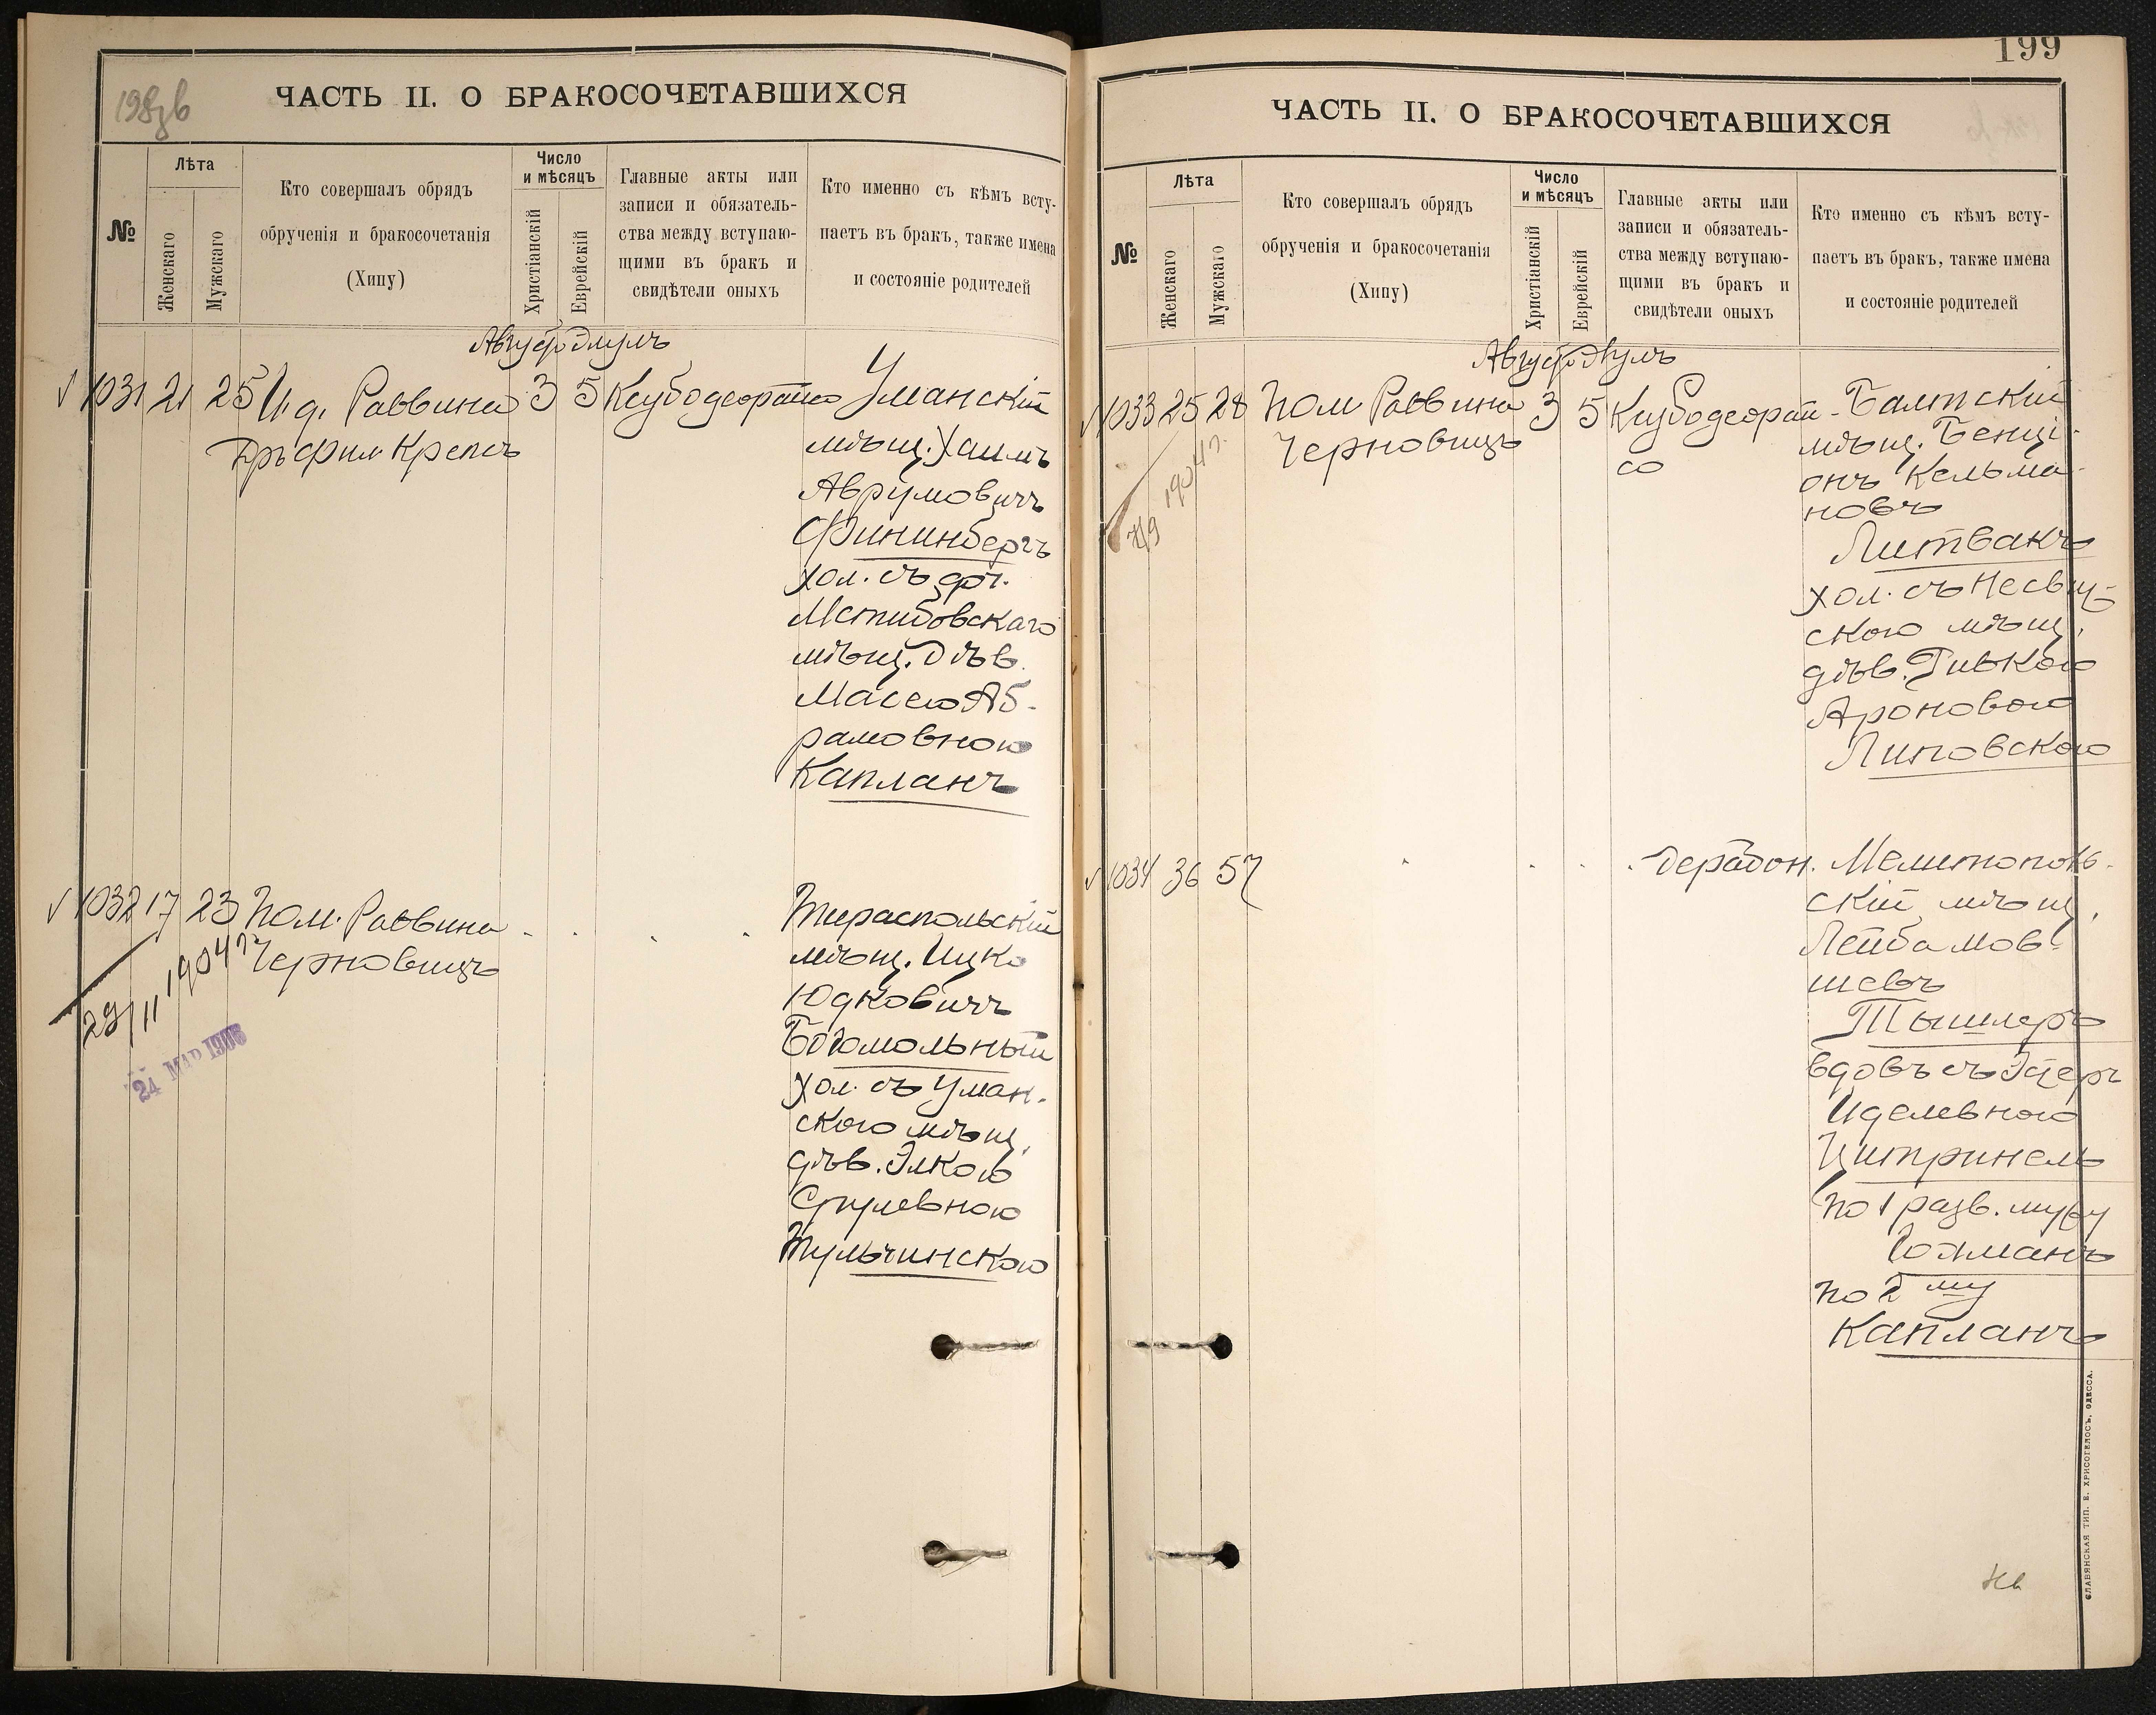 198 зв
ЧАСТЬ II. О БРАКОСОЧЕТАВШИХСЯ
№
Лѣта
Женскаго
Мужскаго
Кто совершалъ обрядъ
обрученія и бракосочетанія
(Хипу)
Число
и мѣсяцъ
Христіанскій
Еврейскій
Главные акты или
записи и обязатель-
ства между вступаю-
щими въ бракъ и
свидѣтели оныхъ
Кто именно съ кѣмъ всту-
паетъ въ бракъ, также имена
и состояніе родителей
1031 21 25 И.д. Раввина 3 5 Уманскій
Крепсъ
мѣщ. Хаимъ
Аврумовичъ
Фининбергъ
хол. съ
Мстибовскаго
мѣщ. дѣв.
Масею Аб-
рамовною
Капланъ
1032 17 23 Пом. Раввина
Черновицъ
29/11 1904 г.
24 МАР 1906
Тираспольскій
мѣщ. Ицко
Юдковичъ
Богомольный
хол. съ Уман-
скою мѣщ.
дѣв. Элкою
Срулевною
Тульчинскою
199
ЧАСТЬ II. О БРАКОСОЧЕТАВШИХСЯ
№
Лѣта
Женскаго
Мужскаго
Кто совершалъ обрядъ
обрученія и бракосочетанія
(Хипу)
Число
и мѣсяцъ
Христіанскій
Еврейскій
Главные акты или
записи и обязатель-
ства между вступаю-
щими въ бракъ и
свидѣтели оныхъ
Кто именно съ кѣмъ всту-
паетъ въ бракъ, также имена
и состояніе родителей
1033 25 28 Пом Раввина 3 5 Балтскій
Черновицъ
1904 г.
мѣщ. Бенці-
онъ Кельма-
новъ
Литвакъ
хол. съ Несвиж-
скою мѣщ.
дѣв. Ривкою
Ароновою
Липовскою
1034 36 57 Мелитополь-
скій мѣщ.
Лейба Мов-
шевъ
Тышлеръ
вдовъ съ Эстеръ
Иделевною
Цитринель
по 1 разв. мужу
Гойманъ
по 2му
Капланъ
СЛАВЯНСКАЯ ТИП. Е. ХРИСОГЕЛОСЪ, ОДЕССА.